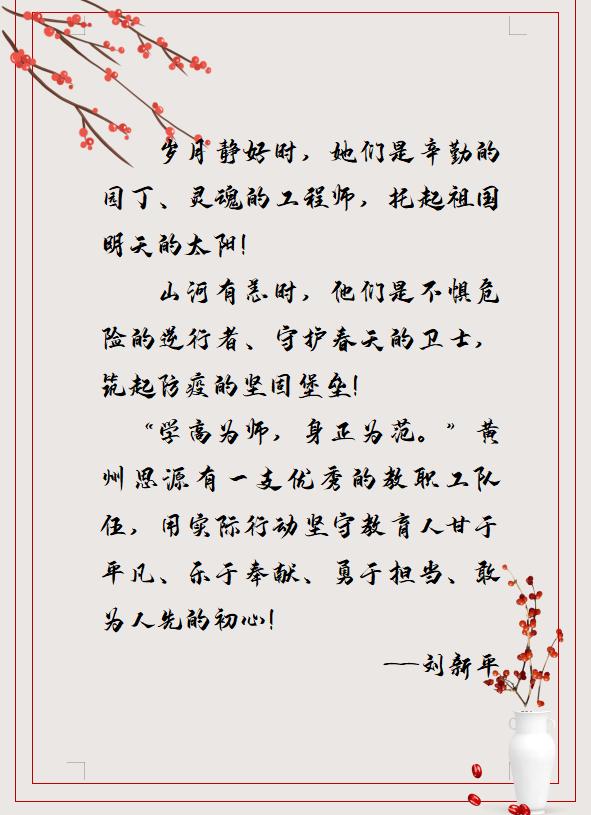 岁月静好时，她们是辛勤的
园丁、灵魂的工程师，托起祖国
明天的太阳！
山河有恙时，他们是不惧危
险的逆行者、守护春天的卫士，
筑起防疫的坚固堡垒！
“学高为师，身正为范。”黄
州思源有一支优秀的教职工队
伍，用实际行动坚守教育人甘于
平凡、乐于奉献、勇于担当、敢
为人先的初心！
——刘新平